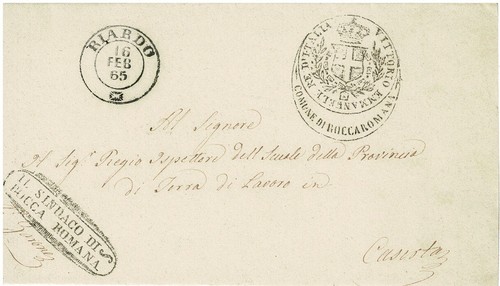 RIARDO
16
FEB
65
VITTORIO EMMANUELE RE D'ITALIA
COMUNE DI ROCCAROMANA
Al Signore
Il Sigr Regio Ispettore dell Scuole della Provincia
di Terra di Lavoro in
Caserta
IL SINDACO DI
ROCCA ROMANA